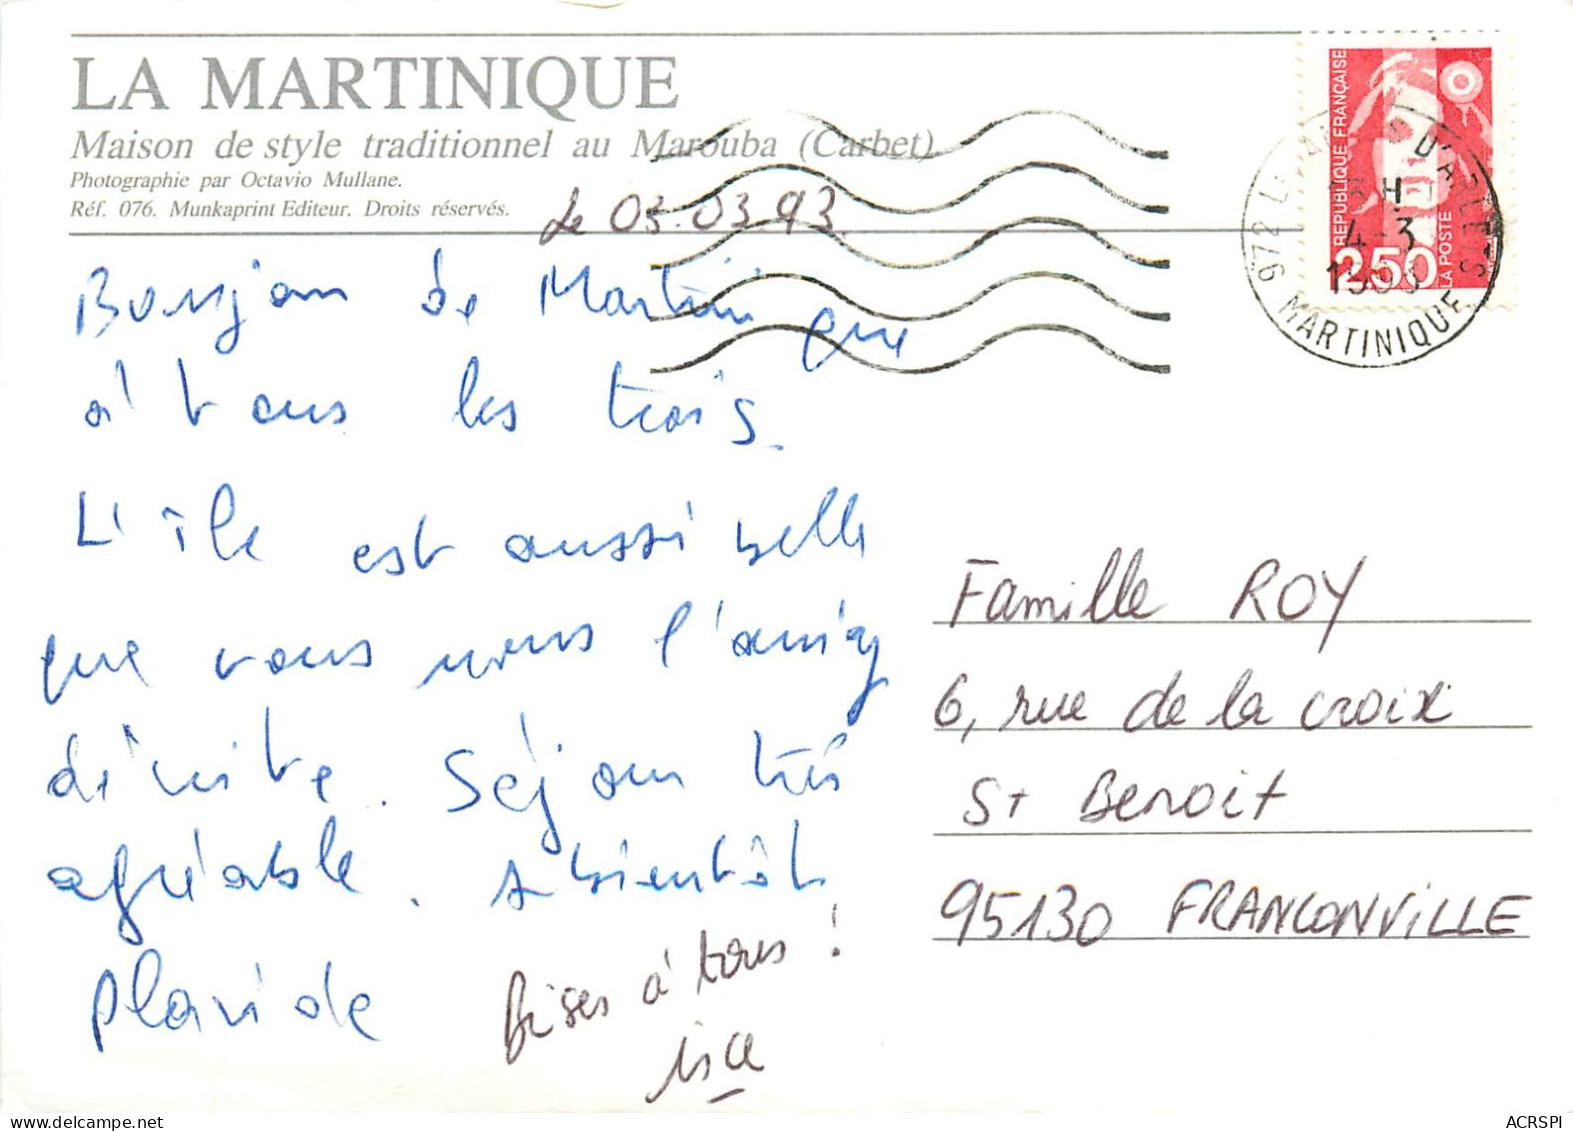 LA MARTINIQUE
Maison de style traditionnel au Marouba (Carbet)
Photographie par Octavio Mullane.
Réf. 076. Munkaprint Editeur. Droits réservés.
Le 03.03.93.
RÉPUBLIQUE FRANÇAISE
2,50
LA POSTE
972 LES D'ARLETS
H
4-3
MARTINIQUE
Bonjour de Martinique
à tous les trois.
L'île est aussi belle
que vous nous l'aviez
décrite. Séjour très
agréable. A bientôt
Bises à tous !
isa
Famille ROY
6, rue de la croix
St Benoit
95130 FRANCONVILLE
ACRSPI